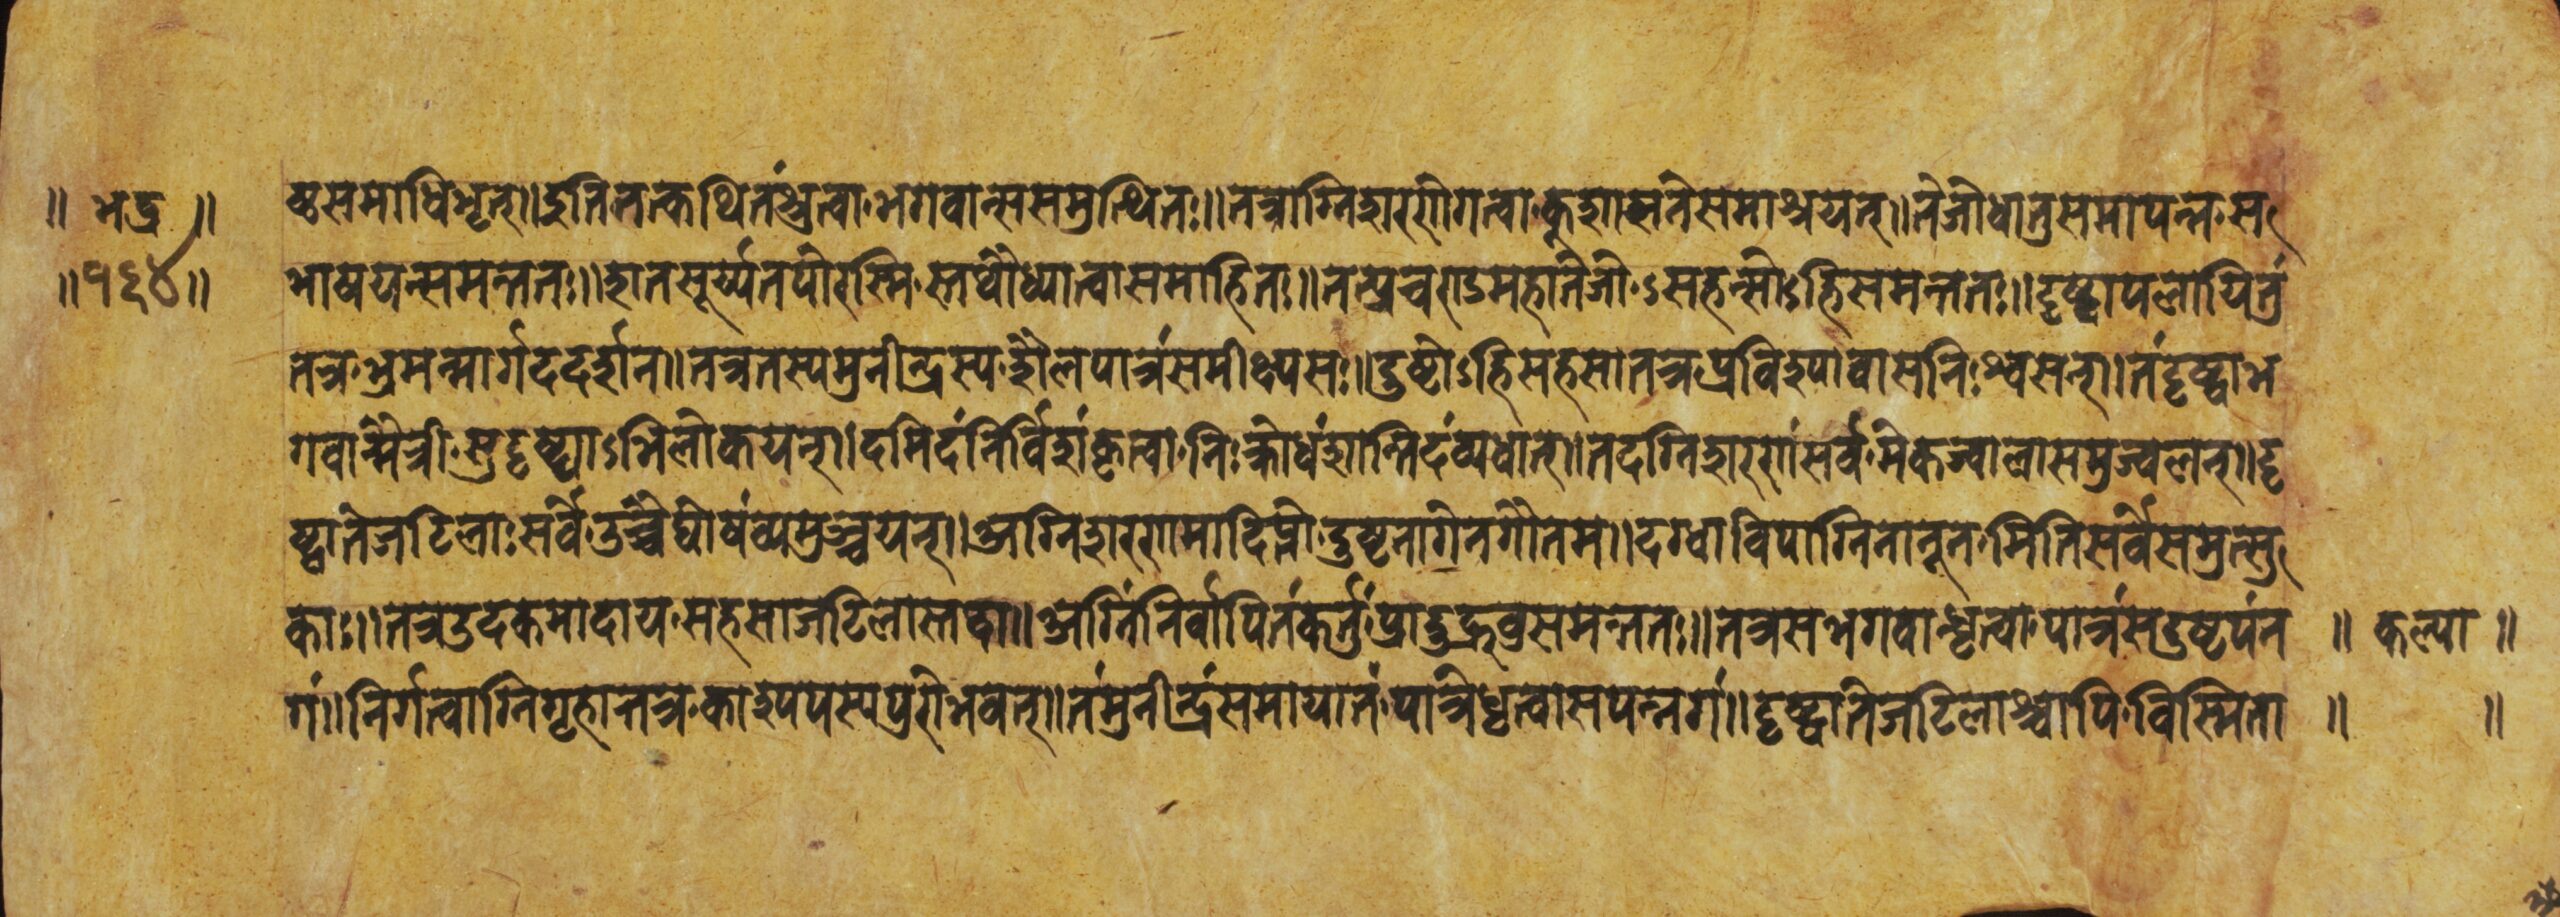 ॥ भद्र ॥
॥ १६४ ॥
ष्टसमाधिभृत्॥इतितत्कथितंश्रुत्वा भगवान्ससमुत्थितः॥तत्राग्निशरणेगत्वा कुशासनेसमाश्रयत्॥तेजोधातुसमापन्न स
भाषयन्समन्ततः॥शतसूर्य्यतपोरस्मि स्तथौध्यात्वासमाहितः॥तत्प्रचराऽमहातेजो ऽसहन्सोऽहिसमन्ततः॥दृष्ट्वापलायितुं
तत्र भ्रमन्मार्गददर्शन॥तत्रतस्यमुनीन्द्रस्य शैलपात्रंसमीक्ष्यसः॥दुष्टोऽहिसहसातत्र प्रविश्यावासनिःश्वसन्॥तंदृष्ट्वाभ
गवान्मैत्री सुदृष्ट्याऽभिलोकयन्॥दमिदंनिर्विशंकृत्वा निःक्रोधंशान्तिदंव्यधात्॥तदग्निशरणंसर्व मेकज्वालासमुज्वलत्॥दृ
ष्ट्वातेजटिलाःसर्वे उच्चैर्घोषंव्यमुञ्चयन्॥अग्निशरणमादिप्तो दुष्टनागेनगौतम॥दग्धाविषाग्निनानून मितिसर्वेसमुत्सु
काः॥तत्रउदकमादाय सहसाजटिलास्तदा॥अग्निंनिर्वापितंकर्तुं प्रादुद्रुवुसमन्ततः॥तत्रसभगवान्धृत्वा पात्रंसदुष्टपंन
॥ कल्पा ॥
गं॥निर्गत्वाग्निगृहात्तत्र काश्यपस्यपुरोभवत्॥तंमुनीन्द्रंसमायातं पात्रेधृत्वासपन्नगं॥दृष्ट्वातेजटिलाश्चापि विस्मिता
॥ ॥